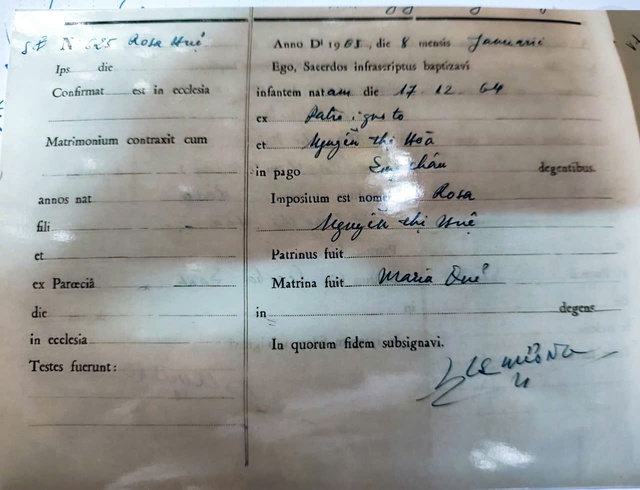 N 525 Rosa Huệ
Ips. die
Confirmat est in ecclesia
Matrimonium contraxit cum
annos nat
fili
et
ex Parœciâ
die
in ecclesia
Testes fuerunt:
Anno Dⁱ 1965, die 8 mensis Januarii
Ego, Sacerdos infrascriptus baptizavi
infantem natam die 17-12-64
ex Patre ignoto
et Nguyễn thị Hoà
in pago degentibus.
Impositum est nomen Rosa
Nguyễn thị Huệ
Patrinus fuit
Matrina fuit Maria Quế
in degens
In quorum fidem subsignavi.